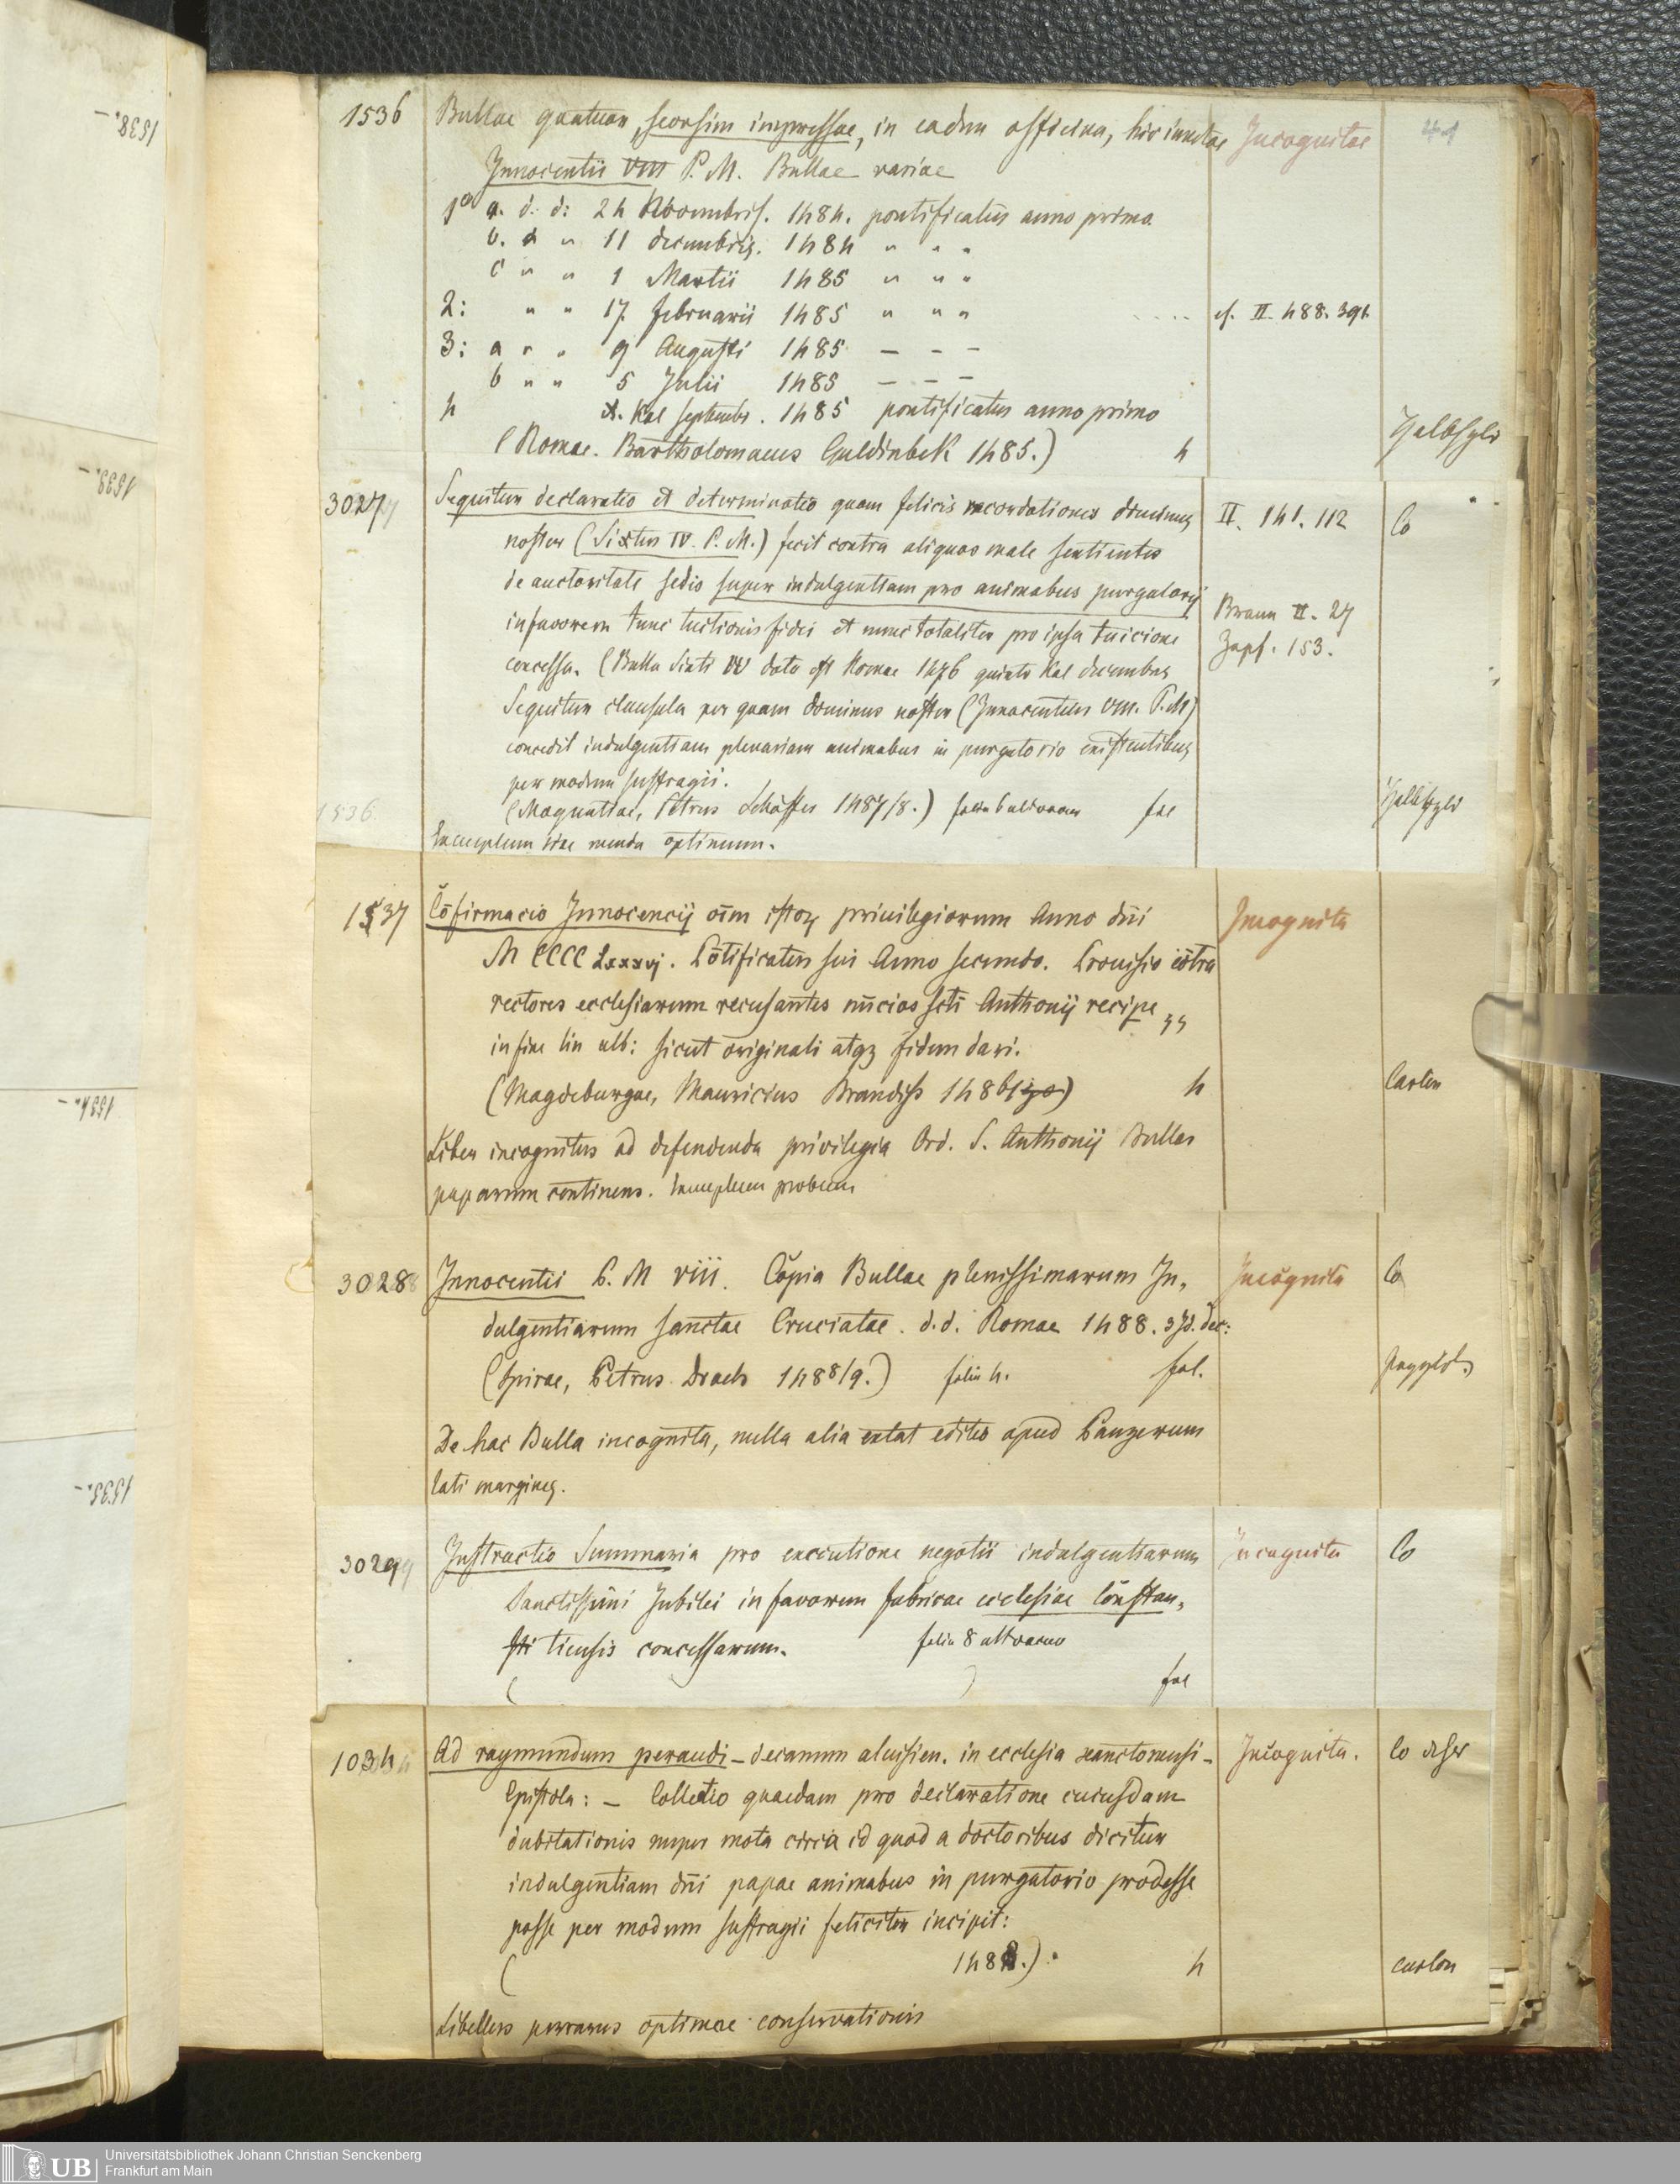 1538.-
1539.-
1534.-
1535.-
41
1536 Bullae quatuor, seorsim impressae, in eadem officina, hic iunctae Incognitae
Innocentii VIII P. M. Bullae variae
1° a. d. d: 24 Novembris. 1484. pontificatus anno primo
b. d " 11 decembris. 1484 " " "
c " " 1 Martii 1485 " " "
2: " " 17 februarii 1485 " " " .... cf. II. 488. 391.
3: a " " 9 Augusti 1485 — — —
b " " 5 Julii 1485 — — —
4 Kal septembr. 1485 pontificatus anno primo
(Romae. Bartholomaeus Guldinbek 1485.) 4
3027 Sequitur declaratio et determinatio quam felicis recordationis dominus II. 141. 112 Co
noster (Sixtus IV. P. M.) fecit contra aliquos male sentientes
de auctoritate sedis super indulgentiam pro animabus purgatorij
in favorem tunc tuitionis fidei et nunc totaliter pro ipsa tuicione Braun II. 27
concessa. (Bulla Sixti IV data est Romae 1476 quinto Kal decembris Zapf. 153.
Sequitur clausula per quam dominus noster (Innocentius VIII. P. M)
concedit indulgentiam plenariam animabus in purgatorio existentibus
per modum suffragii.
1536 (Moguntiae, Petrus Schöffer 1487/8.) folia 6 fol
Exemplum sine menda optimum.
1537 Cōfirmacio Innocencij oīm istoꝝ privilegiorum Anno dñi Incognita
M CCCC Lxxxvj. Pōtificatus sui Anno secundo. Provisio cōtra
rectores ecclesiarum recusantes nūcios scti Anthonij recipe
in fine lin ult: sicut originali atqꝫ fidem dari.
(Magdeburgae, Mauricius Brandiss 1486) 4 Carton
Liber incognitus ad defendenda privilegia Ord. S. Anthonij Bullas
paparum continens. Exemplum probum
3028 Innocentii P. M VIII. Copia Bullae plenissimarum In- Incognita Co
dulgentiarum sanctae Cruciatae. d. d. Romae 1488. 3 Id. dec:
(Spirae, Petrus Drach 1488/9.) folia 4. fol.
De hac Bulla incognita, nulla alia extat editio apud Panzerum
lati margines.
3029 Instructio Summaria pro executione negotii indulgentiarum incognita Co
Sanctissimi Jubilei in favorem fabricae ecclesiae Constan-
tiensis concessarum. folia 8
( ) fol
1034 Ad raymundum peraudi — decanum alnisien. in ecclesia xanctonensi — Incognita. Co
Epistola: — Collectio quaedam pro declaratione cuiusdam
dubitationis nuper mota circa id quod a doctoribus dicitur
indulgentiam dñi papae animabus in purgatorio prodesse
posse per modum suffragii feliciter incipit:
( 1488.) 4 carton
Libellus perrarus optimae conservationis
UB Universitätsbibliothek Johann Christian Senckenberg
Frankfurt am Main